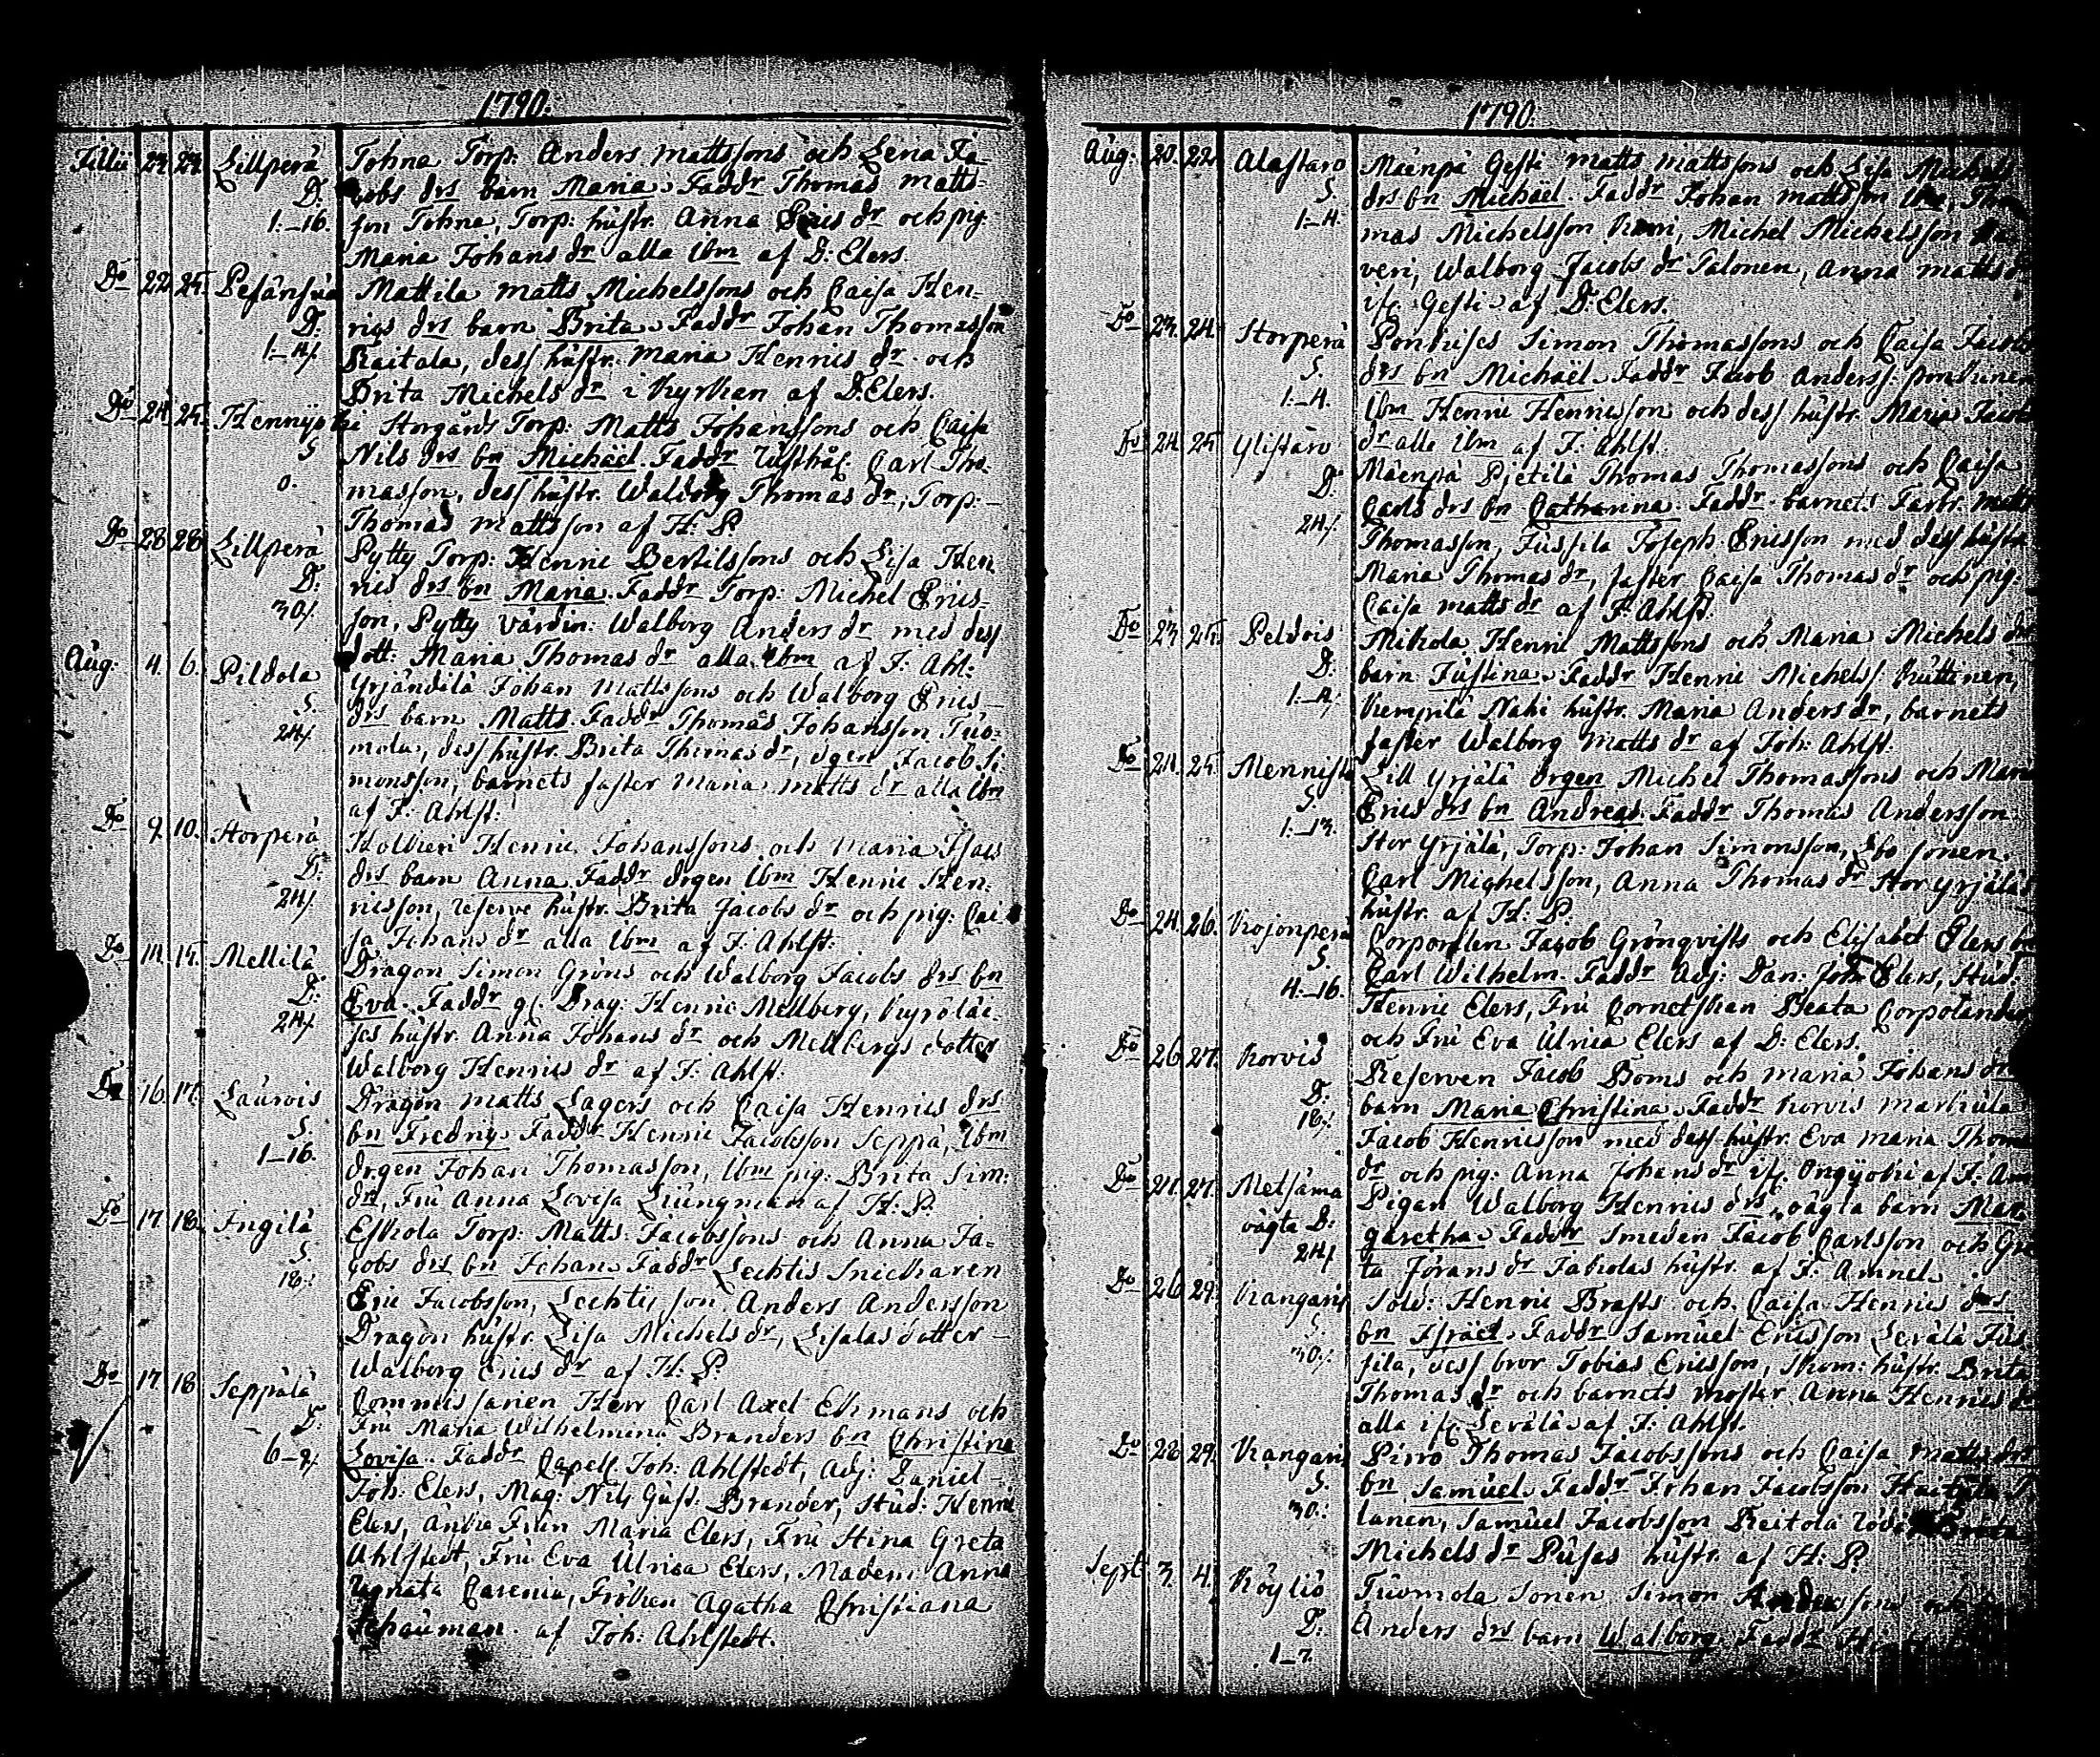 1790.
Julii 23. 24. Lillperä Johne Torp: Anders Mattssons och Lena Ja-
D: cobs drs barn Maria. Faddr Thomas Matts-
1.–16. son Johne, Torp: hustr. Anna Erics dr och pig.
Maria Johans dr alla ibm af D: Elers.
Do 22. 25. Pesänsuu Mattila Matts Michelssons och Caisa Hen-
D. rics drs barn Brita. Faddr Johan Thomasson
Raitala, dess hustr. Maria Henrics dr och
Brita Michels dr i Kyrkan af D. Elers.
Do 24. 25. Hennijoki Storgårds Torp: Matts Johanssons och Caisa
S Nils drs bn Michaël. Faddr Rusthål. Carl Tho-
0. masson, dess hustr. Walborg Thomas dr, Torp.
Thomas Mattsson af H: P.
Do 28 28 Lillperä Pytty Torp: Henric Bertilssons och Lisa Hen
D: rics drs bn Maria. Faddr Torp: Michel Erics-
30/. son, Pytty värdin: Walborg Anders dr med dess
dott: Maria Thomas dr alla ibm af J: Ahl:
Aug: 4. 6. Pildola Yrjändilä Johan Mattssons och Walborg Erics
S. drs barn Matts. Faddr Thomas Johansson Tuo-
24/. mola, dess hustr. Brita Thomas dr, drgen Jacob Si
monsson, barnets faster Maria Matts dr alla ibm
af J: Ahlst:
Do 9. 10. Storperä Henric Johanssons och Maria Isacs
D: drs barn Anna. Faddr drgen ibm Henric Hen-
24/. ricsson, reserve hustr. Brita Jacobs dr och pig: Cai
sa Johans dr alla ibm af J: Ahlst:
Do 14. 15. Mellilä Dragon Simon Gröns och Walborg Jacobs drs bn
D: Eva. Faddr gl. Drag: Henric Mellberg, Kyröläi-
24/. ses hustr. Anna Johans dr och Mellbergs dotter
Walborg Henrics dr af J: Ahlst:
Do 16. 17. Laurois Dragon Matts Lagers och Caisa Henrics drs
S. bn Fredric. Faddr Henric Jacobsson Seppä, ibm
1–16. drgen Johan Thomasson, ibm pig: Brita Sim:
dr, Fru Anna Lovisa Liungman af H: P.
Do 17. 18. Ingilä Eskola Torp: Matts Jacobssons och Anna Ja-
S. cobs drs bn Johan. Faddr Sechtis Snickaren
18/. Eric Jacobsson, Sechtis son Anders Andersson
Dragon hustr. Lisa Michels dr, Lisalas dotter
Walborg Erics dr af H: P.
Do 17. 18 Seppälä Commissarien Herr Carl Axel Ekmans och
D: Fru Maria Wilhelmina Branders bn Christina
6–9/. Lovisa. Faddr Capell. Joh: Ahlstedt, Adj: Daniel
Joh: Elers, Mag: Nils Gust: Brander, Stud: Henric
Elers, Änke Frun Maria Elers, Fru Stina Greta
Ahlstedt, Fru Eva Ulrica Elers, Madem: Anna
Renata Carenia, Fröken Agatha Christiana
Schauman af Joh: Ahlstedt.
1790.
Aug: 20. 22. Alastaro Mäenpä Gesti Matts Mattssons och Lisa Michels
S. drs bn Michaël. Faddr Johan Mattsson ibm, Tho
1–4. mas Michelsson Michel Michelsson
veri, Walborg Jacobs dr Talonen, Anna Matts dr
Gesti af D: Elers.
Do 23. 24. Storperä Simon Thomassons och Caisa Jacobs
S. drs bn Michaël. Faddr Jacob Anderss.
1.–4. ibm Henric Henricsson och dess hustr. Maria Jacobs
dr alla ibm af J: Ahlst.
Do 24 25 Ylistaro Mäenpä Pietilä Thomas Thomassons och Caisa
D. Carls drs bn Catharina. Faddr barnets Farbr. Matts
24/. Thomasson, Jussila Joseph Ericsson med dess hustr
Maria Thomas dr, faster Caisa Thomas dr och pig.
Caisa Matts dr af J: Ahlst.
Do 23. 25. Peldois Mikola Henric Mattssons och Maria Michels dr
D. barn Justina. Faddr Henric Michelss. Kuttinen,
1.–4/. Kempilä Nahi hustr. Maria Anders dr, barnets
faster Walborg Matts dr af Joh: Ahlst.
Do 24. 25. Mennistö Lill Yrjälä drgen Michel Thomassons och Maria
S. Erics drs bn Andreas. Faddr Thomas Andersson
1.–13. Stor Yrjälä, Torp: Johan Simonsson, sonen
Carl Michelsson, Anna Thomas dr Stor Yrjäläs
hustr. af H: P.
Do 24. 26. Kojonperä Corporalen Jacob Grönqvists och Elisabet Elers bn
S. Carl Wilhelm. Faddr Adj: Dan: Joh: Elers, Stud:
4.–16. Henric Elers, Fru Cornetskan Beata
och Fru Eva Ulrica Elers af D: Elers.
Do 26 27. Korvis Reserven Jacob Boms och Maria Johans dr
D. barn Maria Christina. Faddr Korvis Markula
18/. Jacob Henricsson med dess hustr. Eva Maria Thom
dr och pig: Anna Johans dr if. Ongijoki af J: Am
Do 21. 27. Metsäma Pigan Walborg Henrics drs oägta barn Mar
oägta D: garetha. Faddr Smeden Jacob Carlsson och Gre
24/. ta Jörans dr Jakolas hustr. af J: Amnel.
Do 26 29. Kangaris Sold: Henric Brasts och Caisa Henrics drs
S. bn Israël. Faddr Samuel Ericsson Seválä Jus
30/. sila, dess bror Tobias Ericsson, Skom: hustr. Brita
Thomas dr och barnets moster Anna Henrics dr
alla if. Seválä af J: Ahlst.
Do 28 29. Kangaris Pirro Thomas Jacobssons och Caisa Matts drs
S. bn Samuel. Faddr Johan Jacobsson
30: lanen, Samuel Jacobsson Reitola
Michels dr Pusas hustr. af H: P.
Sept 3. 4. Köyliö Tuomola sonen Simon Anderssons och
D: Anders drs barn Walborg. Faddr
1–7.